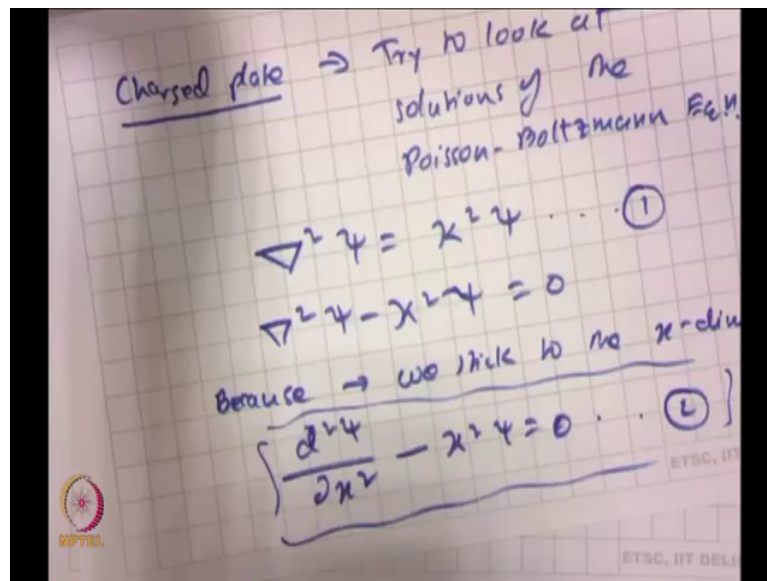 Charged plate ⇒ Try to look at
solutions of the
Poisson-Boltzmann Eqn.
∇²ψ = x²ψ ... ①
∇²ψ - x²ψ = 0
Because → we stick to the x-dim
∂²ψ/∂x² - x²ψ = 0 .. ②
ETSC, IIT
ETSC, IIT DELH
NPTEL